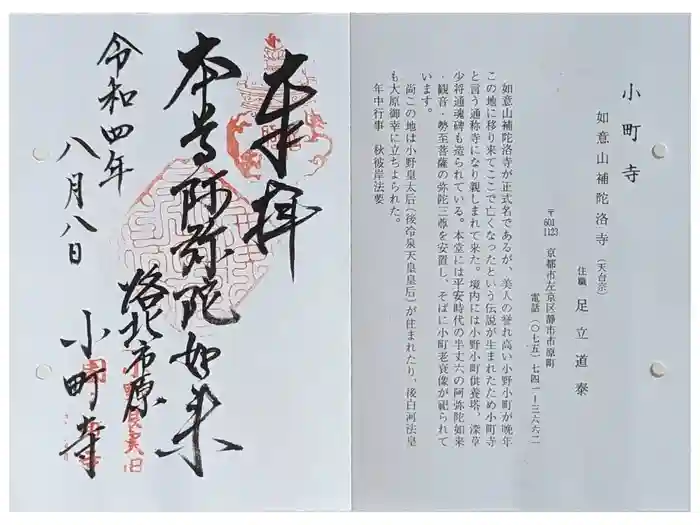 奉拝
本尊阿弥陀如来
洛北市原
小町寺
令和四年
八月八日
小町寺
如意山補陀洛寺（天台宗）
住職 足立道泰
〒601-1123 京都市左京区静市市原町
電話（〇七五）七四一－三六六二
如意山補陀洛寺が正式名であるが、美人の誉れ高い小野小町が晩年
この地に移り来てここで亡くなったという伝説が生まれたため小町寺
と言う通称寺になり親しまれて来た。境内には小野小町供養塔、深草
少将通魂碑も造られている。本堂には平安時代の半丈六の阿弥陀如来
・観音・勢至菩薩の弥陀三尊を安置し、そばに小町老衰像が祀られて
います。
尚この地は小野皇太后（後冷泉天皇皇后）が住まれたり、後白河法皇
も大原御幸に立ちよられた。
年中行事 秋彼岸法要